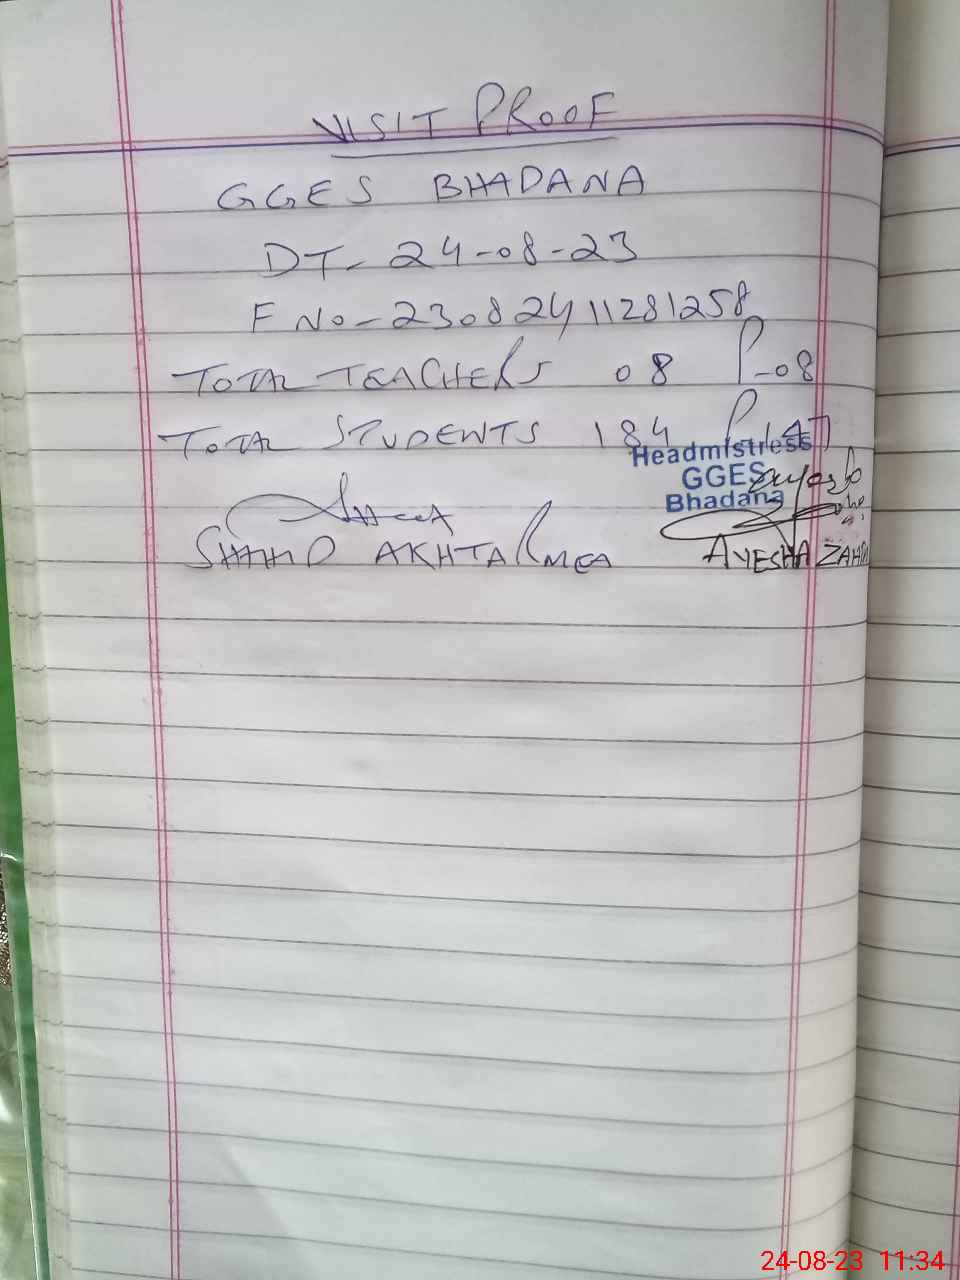 VISIT PROOF
GGES BHADANA
DT- 24-08-23
F NO- 23082411281258
TOTAL TEACHERS 08 P-08
TOTAL STUDENTS 184 P-147
Headmistress
GGES
Bhadana
SHAHID AKHTAR MEA
AYESHA ZAHRA
24-08-23 11:34